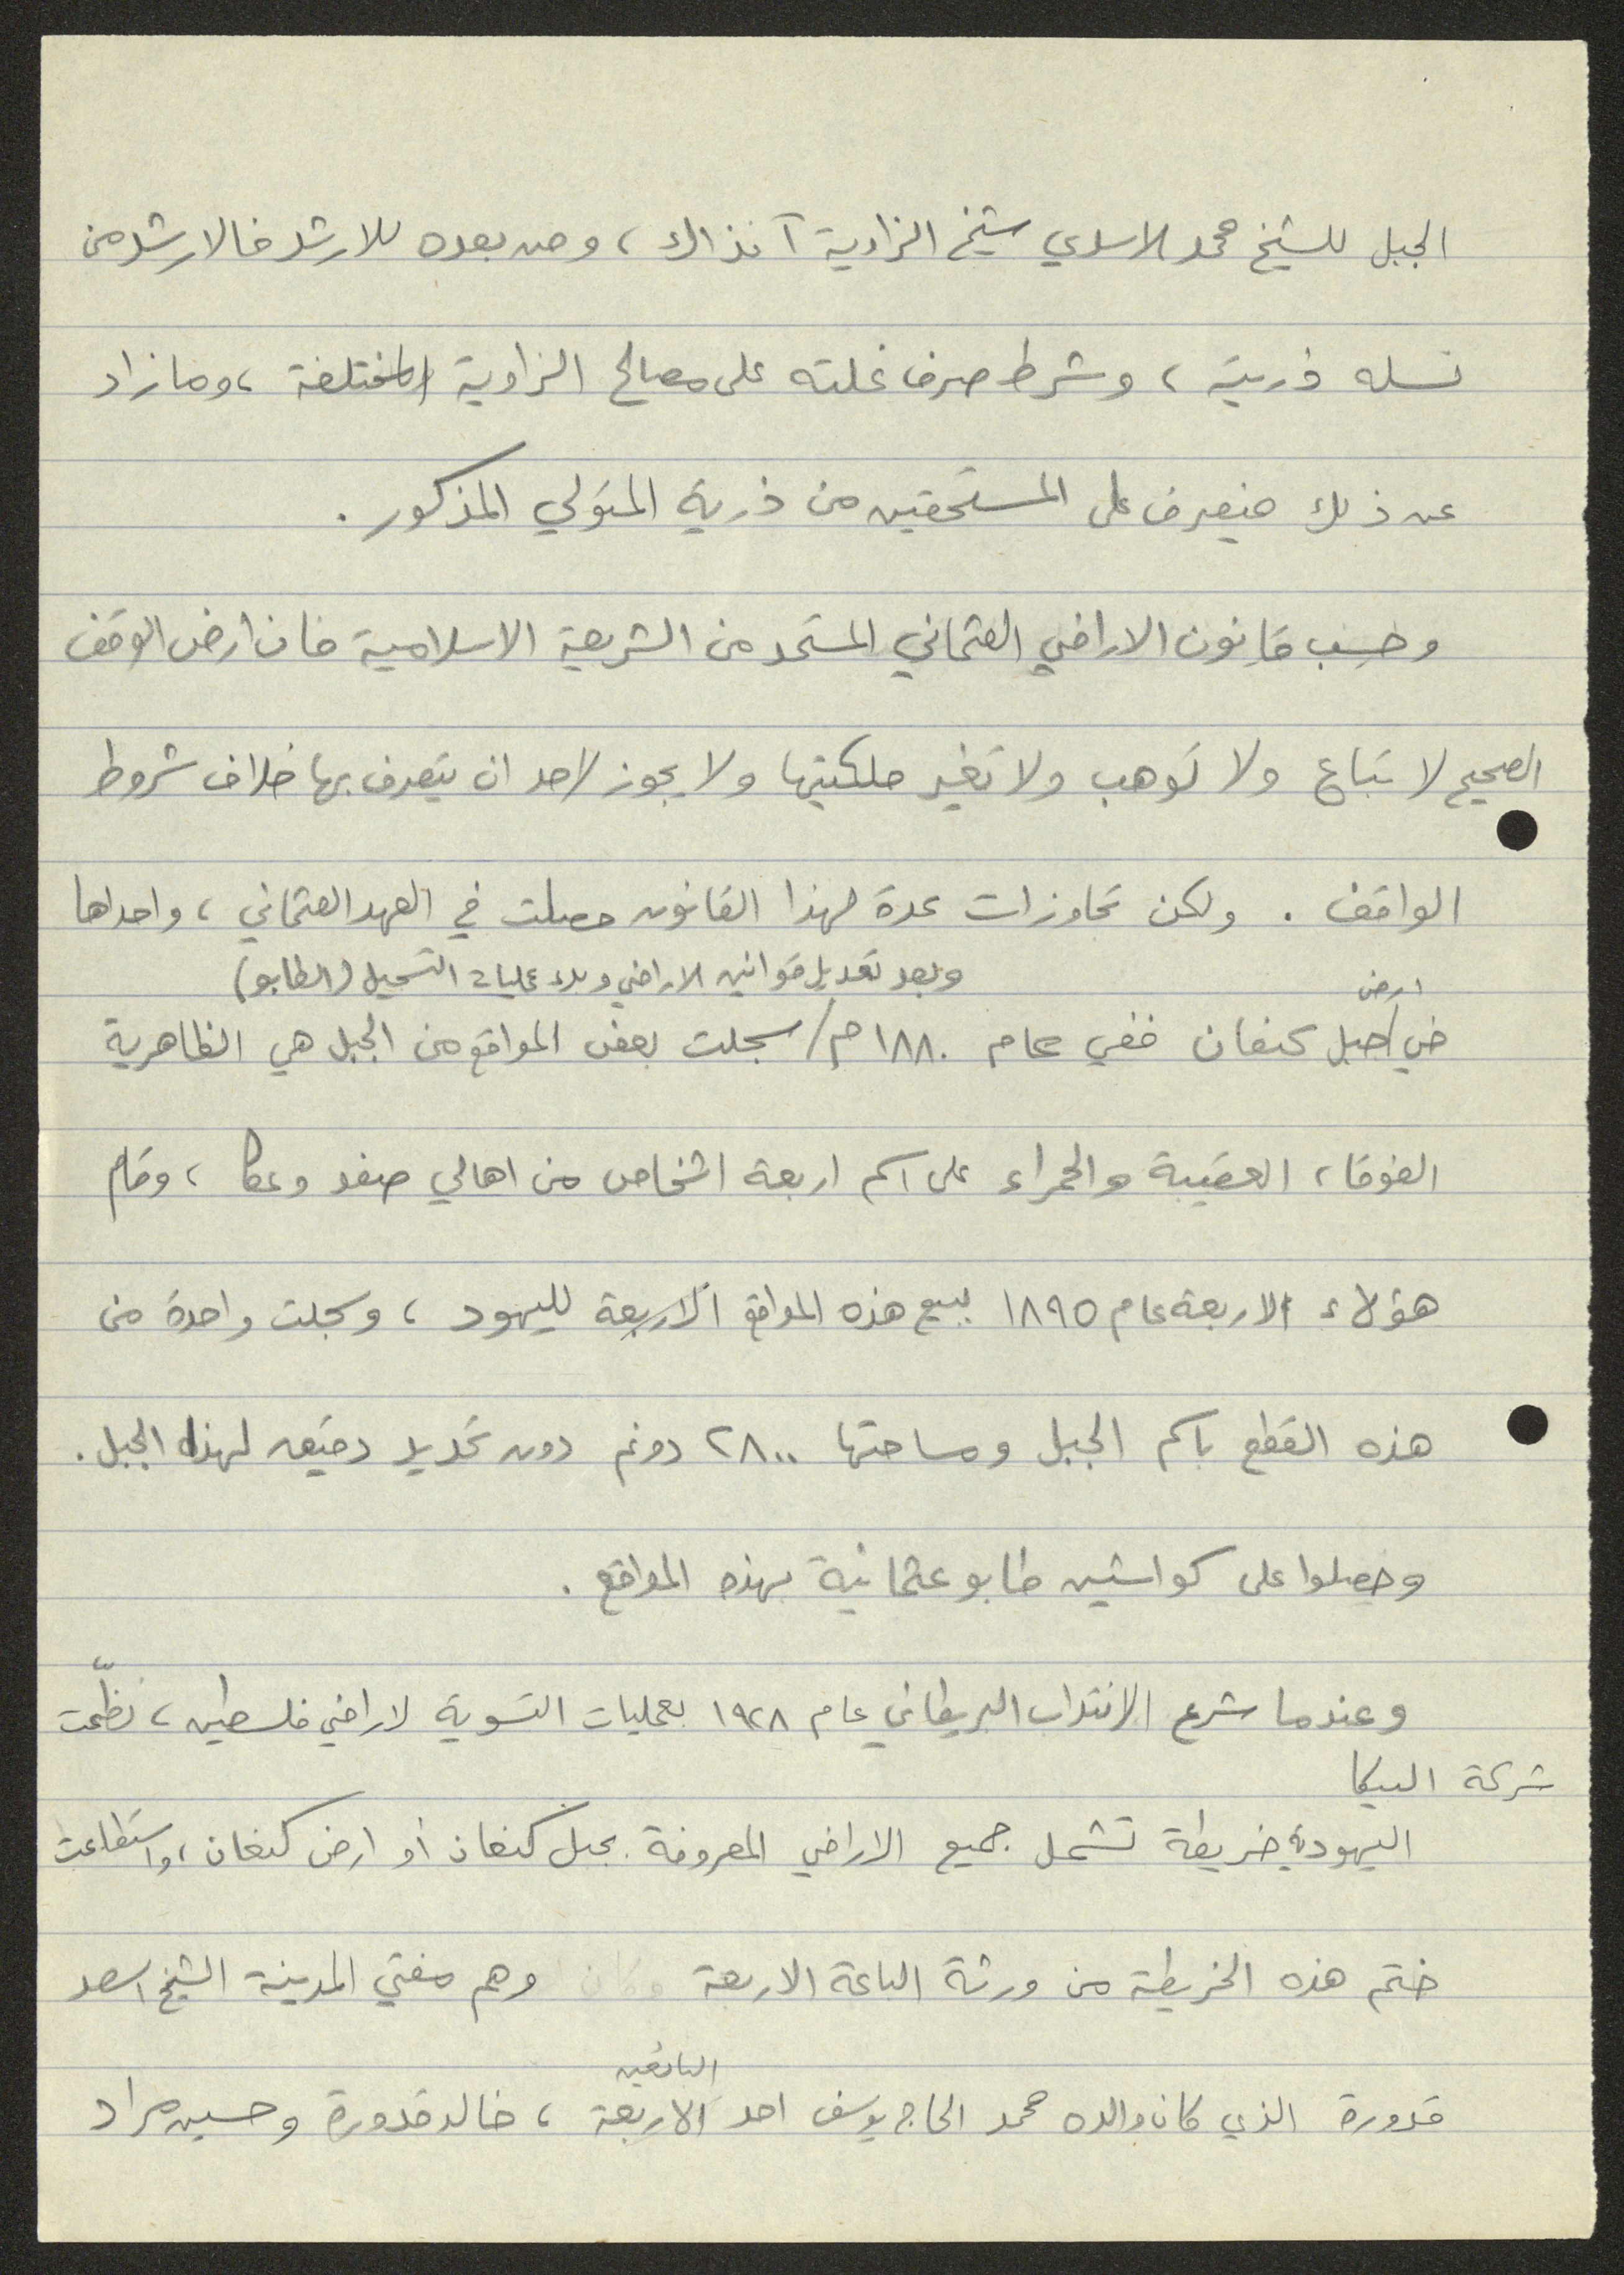 الجبل للشيخ محمد الاسدي شيخ الزاوية آنذاك ، ومن بعده للارشد فالارشد من
نسله وذريته ، وشرط صرف غلته على مصالح الزاوية المختلفة ، وما زاد
عن ذلك فيصرف على المستحقين من ذرية المتولي المذكور .
وحسب قانون الاراضي العثماني المستمد من الشريعة الاسلامية فان ارض الوقف
الصحيح لا تباع ولا توهب ولا تغير ملكيتها ولا يجوز لاحد ان يتصرف بها خلاف شروط
الواقف . ولكن تجاوزات عدة لهذا القانون حصلت في العهد العثماني ، واحداها
ارض وبعد تعديل قوانين الاراضي وبدء عمليات التسجيل (الطابو)
في/جبل كنعان ففي عام ١٨٨٠م/سجلت بعض المواقع من الجبل هي الظاهرية
الفوقا، العقيبة والحمراء على اسم اربعة اشخاص من اهالي صفد وعكا ، وقام
هؤلاء الاربعة عام ١٨٩٥ ببيع هذه المواقع الاربعة لليهود ، وسجلت واحدة من
هذه القطع باسم الجبل ومساحتها ٢٨٠٠ دونم دون تحديد دقيق لهذا الجبل .
وحصلوا على كواشين طابو عثمانية بهذه المواقع .
وعندما شرع الانتداب البريطاني عام ١٩٢٨ بعمليات التسوية لاراضي فلسطين ، نظّمت
شركة البيكا
اليهودية خريطة تشمل جميع الاراضي المعروفة بجبل كنعان أو ارض كنعان ، واستطاعت
ختم هذه الخريطة من ورثة الباعة الاربعة وكان وهم مفتي المدينة الشيخ اسعد
البائعين
قدورة الذي كان والده محمد الحاج يوسف احد الاربعة ، خالد قدورة وحسين مراد